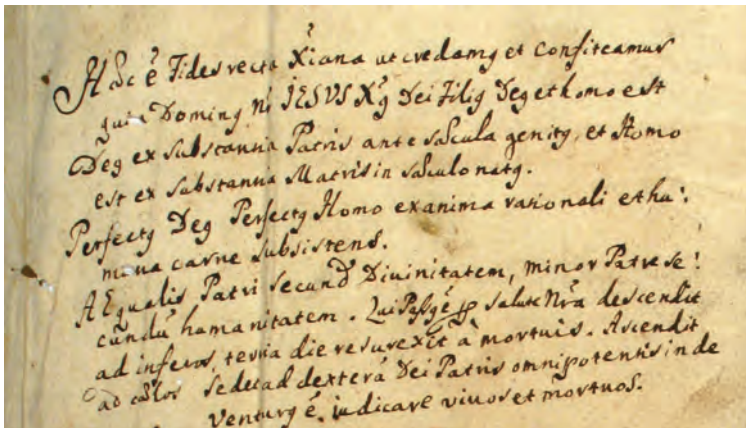 Hæc ē Fides recta Xiana ut credamꝰ et Confiteamur
quia Dominꝰ nr̄ JESUS Xꝰ Dei Filiꝰ Deꝰ et homo est
Deꝰ ex substantia Patris ante sæcula genitꝰ, et Homo
est ex substantia Matris in sæculo natꝰ.
Perfectꝰ Deꝰ Perfectꝰ Homo ex anima rationali et hu:
mana carne subsistens.
AEqualis Patri secund̄ Divinitatem, minor Patre se:
cundū humanitatem. Qui Passꝰ ē ꝓ salute Nr̄a descendit
ad inferos, tertia die resurexit à mortuis. Ascendit
ad cælos sedet ad dexterā Dei Patris omnipotentis inde
Venturꝰ ē, iudicare vivos et mortuos.